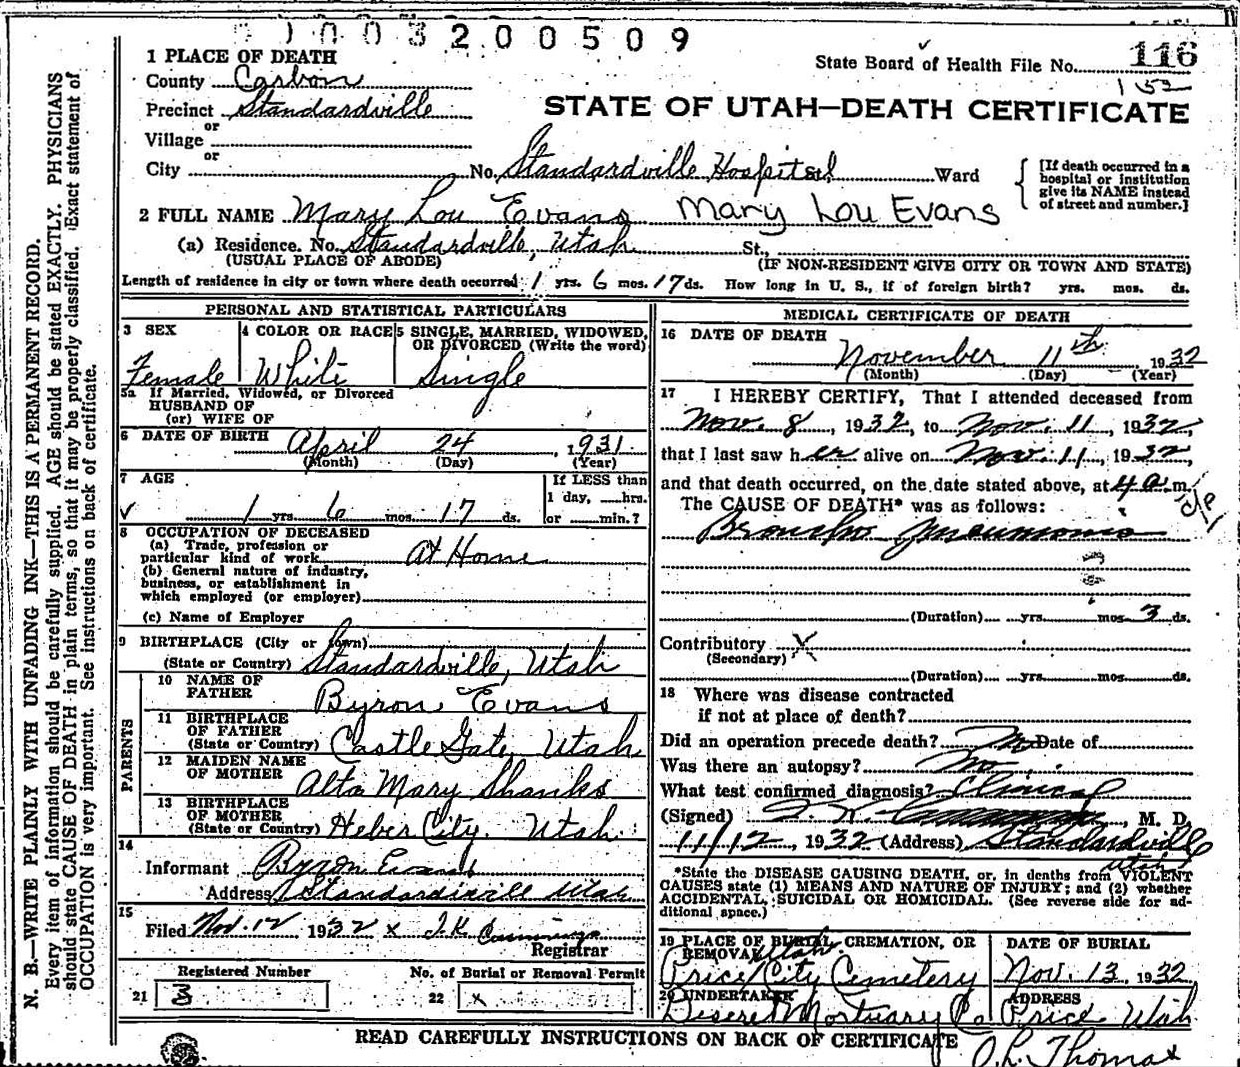 003200509
1 PLACE OF DEATH
State Board of Health File No. 116
County Carbon
152
Precinct Standardville
STATE OF UTAH—DEATH CERTIFICATE
or
Village
or
City No. Standardville Hospital Ward
[If death occurred in a hospital or institution give its NAME instead of street and number.]
2 FULL NAME Mary Lou Evans Mary Lou Evans
(a) Residence. No. Standardville, Utah St.,
(USUAL PLACE OF ABODE) (IF NON-RESIDENT GIVE CITY OR TOWN AND STATE)
Length of residence in city or town where death occurred 1 yrs. 6 mos. 17 ds. How long in U. S., if of foreign birth? yrs. mos. ds.
PERSONAL AND STATISTICAL PARTICULARS
3 SEX 4 COLOR OR RACE 5 SINGLE, MARRIED, WIDOWED, OR DIVORCED (Write the word)
Female White Single
5a If Married, Widowed, or Divorced
HUSBAND OF
(or) WIFE OF
6 DATE OF BIRTH April 24, 1931
(Month) (Day) (Year)
7 AGE
If LESS than
1 day, hrs.
or min.?
1 yrs. 6 mos. 17 ds.
8 OCCUPATION OF DECEASED
(a) Trade, profession or
particular kind of work At Home
(b) General nature of industry,
business, or establishment in
which employed (or employer)
(c) Name of Employer
9 BIRTHPLACE (City or town)
(State or Country) Standardville, Utah
PARENTS
10 NAME OF
FATHER Byron Evans
11 BIRTHPLACE
OF FATHER
(State or Country) Castle Gate, Utah
12 MAIDEN NAME
OF MOTHER Alta Mary Shanks
13 BIRTHPLACE
OF MOTHER
(State or Country) Heber City, Utah
14
Informant Byron Evans
Address Standardville Utah
15
Filed Nov. 12, 1932 x J.K. Cummings
Registrar
Registered Number No. of Burial or Removal Permit
21 3 22 x
MEDICAL CERTIFICATE OF DEATH
16 DATE OF DEATH
November 11th 1932
(Month) (Day) (Year)
17 I HEREBY CERTIFY, That I attended deceased from
Nov. 8, 1932, to Nov. 11, 1932,
that I last saw her alive on Nov. 11, 1932,
and that death occurred, on the date stated above, at 4 a.m.
The CAUSE OF DEATH* was as follows:
Broncho Pneumonia
(Duration) yrs. mos. 3 ds.
Contributory X
(Secondary)
(Duration) yrs. mos. ds.
18 Where was disease contracted
if not at place of death?
Did an operation precede death? No Date of
Was there an autopsy? No
What test confirmed diagnosis? Clinical
(Signed) , M. D.
11/12, 1932 (Address) Standardville
Utah
*State the DISEASE CAUSING DEATH, or, in deaths from VIOLENT
CAUSES state (1) MEANS AND NATURE OF INJURY; and (2) whether
ACCIDENTAL, SUICIDAL OR HOMICIDAL. (See reverse side for ad-
ditional space.)
19 PLACE OF BURIAL, CREMATION, OR
REMOVAL Utah
Price City Cemetery
DATE OF BURIAL
Nov. 13, 1932
20 UNDERTAKER
Deseret Mortuary Co
ADDRESS
Price Utah
READ CAREFULLY INSTRUCTIONS ON BACK OF CERTIFICATE
O.L. Thomas
N. B.—WRITE PLAINLY WITH UNFADING INK—THIS IS A PERMANENT RECORD.
Every item of information should be carefully supplied. AGE should be stated EXACTLY. PHYSICIANS
should state CAUSE OF DEATH in plain terms, so that it may be properly classified. Exact statement of
OCCUPATION is very important. See instructions on back of certificate.